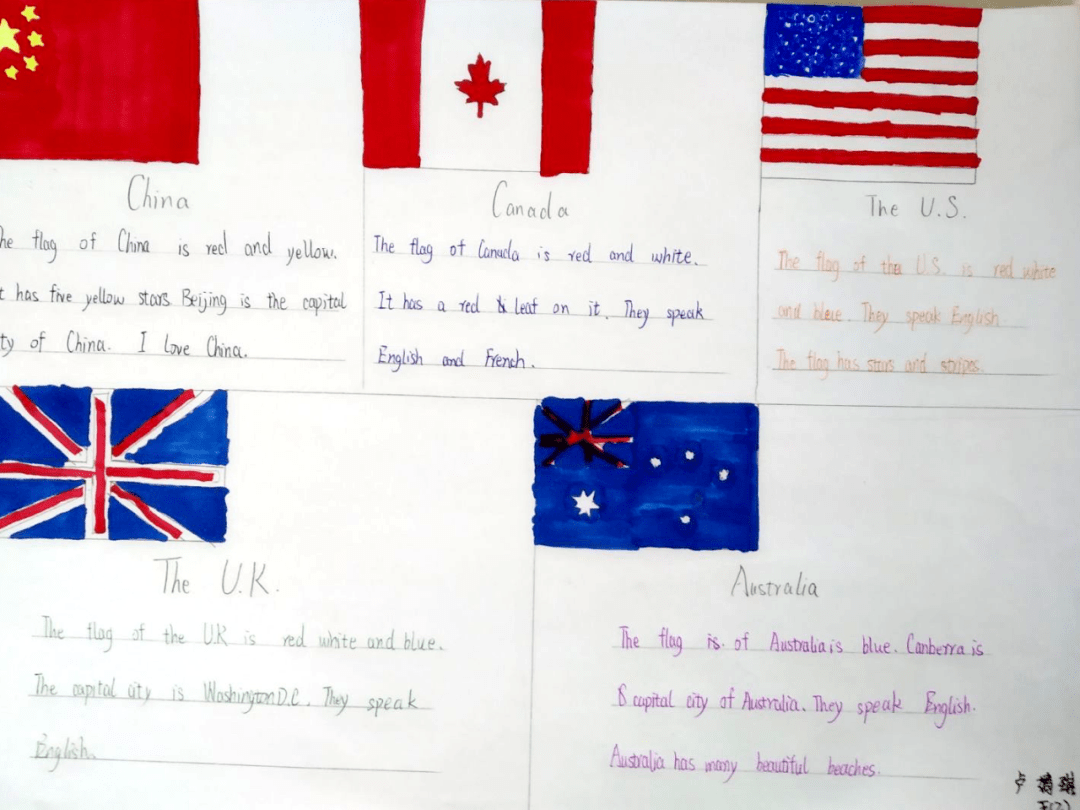 China
he flag of China is red and yellow.
t has five yellow stars Beijing is the capital
ty of China. I love China.
Canada
The flag of Canada is red and white.
It has a red leaf on it. They speak
English and French.
The U.S.
The flag of the U.S. is red white
and blue. They speak English
The flag has stars and stripes.
The U.K.
The flag of the U.K is red white and blue.
The capital city is Washington D.C. They speak
English.
Australia
The flag is. of Australia is blue. Canberra is
capital city of Australia. They speak English.
Australia has many beautiful beaches.
卢